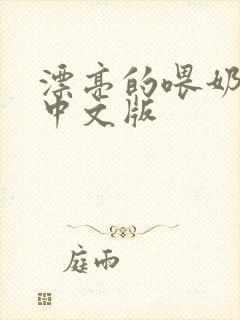 漂亮的喂奶
中文版
庭雨